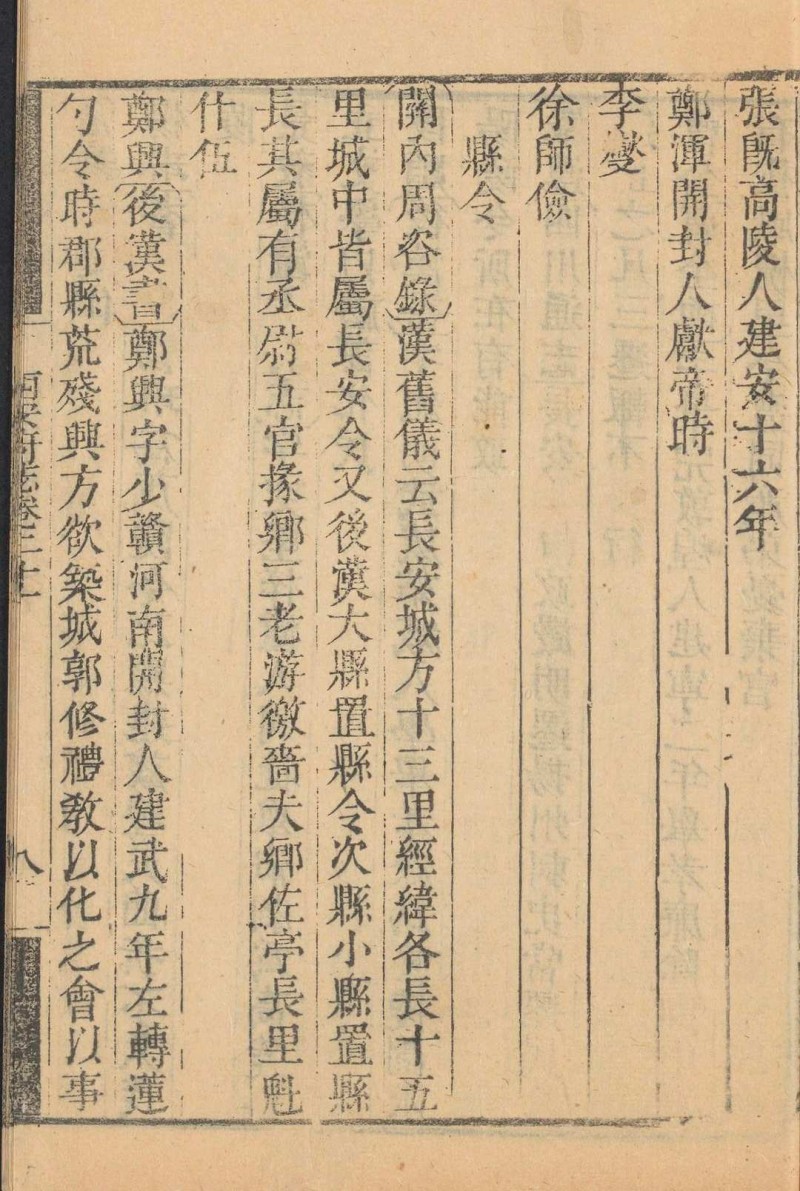 張既高陵人建安十六年
鄭渾開封人獻帝時
李燮
徐師儉
縣令
關內周咨錄漢舊儀云長安城方十三里經緯各長十五
里城中皆屬長安令又後漢大縣置縣令次縣小縣置縣
長其屬有丞尉五官掾鄉三老游徼嗇夫鄉佐亭長里魁
什伍
鄭興後漢書鄭興字少贛河南開封人建武九年左轉蓮
勺令時郡縣荒殘興方欲築城郭修禮敎以化之會以事
西安府志卷二十
八